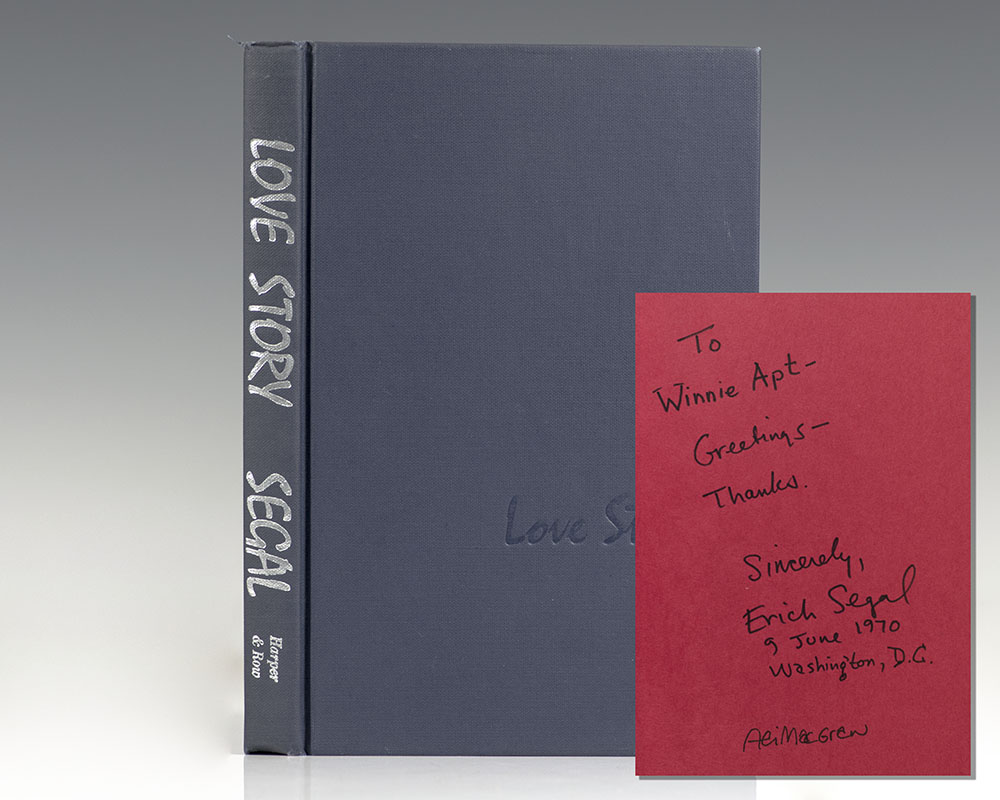 LOVE STORY SEGAL
Harper
& Row
Love St
To
Winnie Apt-
Greetings-
Thanks.
Sincerely,
Erich Segal
9 June 1970
Washington, D.C.
Ali MacGraw